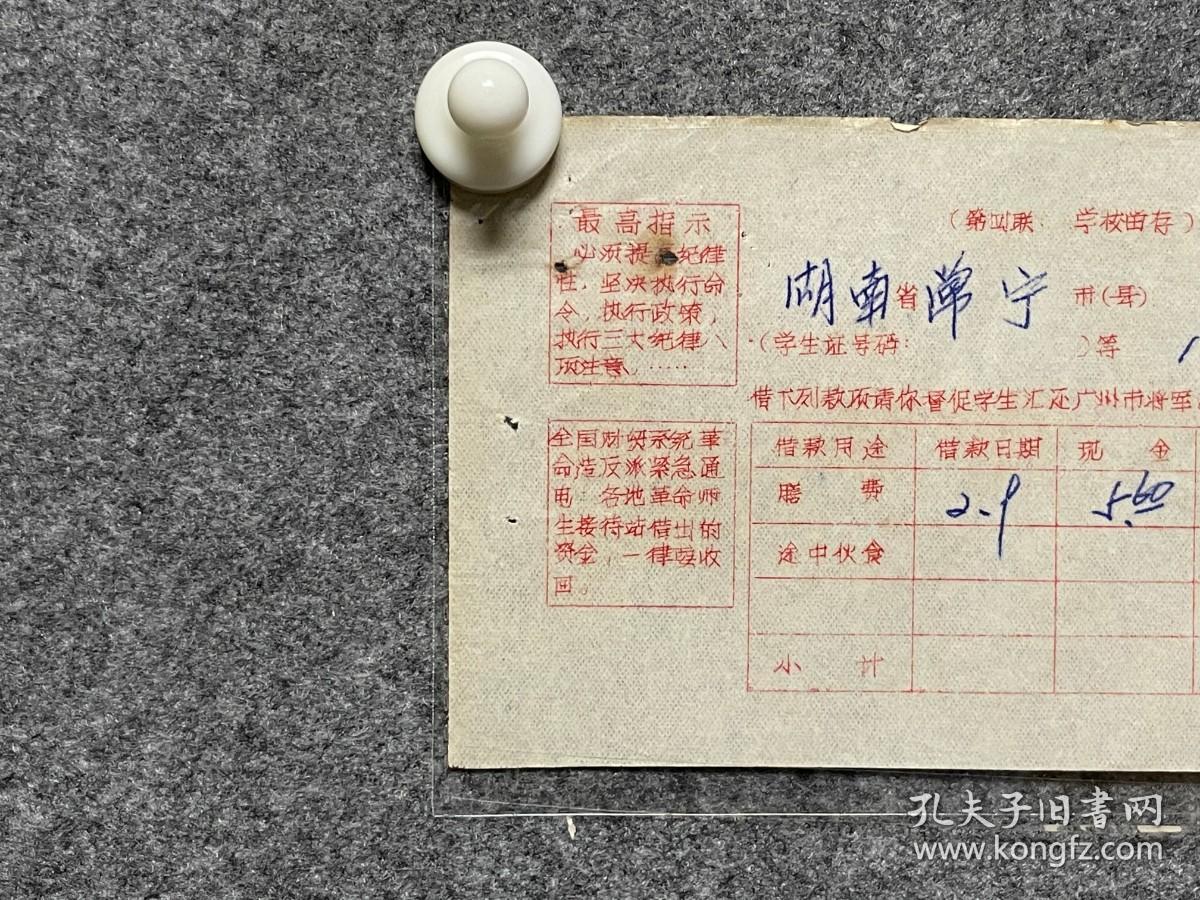 最高指示
必须提高纪律
性，坚决执行命
令，执行政策，
执行三大纪律八
项注意，……
全国财贸系统革
命造反派紧急通
电：各地革命师
生接待站借出的
资金，一律要收
回。
（第四联、学校留存）
湖南省常宁市(县)
（学生证号码：）等
借下列款项请你督促学生汇还广州市将军
借款用途 借款日期 现金
膳费 2.9 5.60
途中伙食
小计
孔夫子旧书网
www.kongfz.com